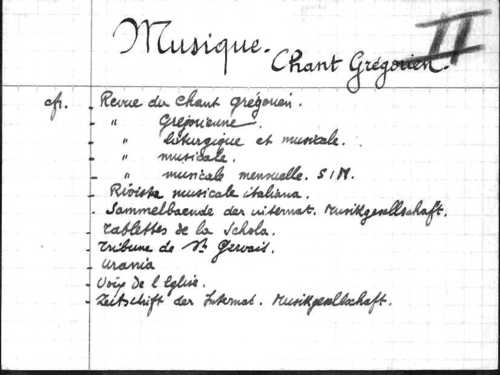 II
Musique.
Chant Grégorien.
cfr. - Revue du Chant Grégorien.
- " Grégorienne.
- " liturgique et musicale.
- " musicale.
- " musicale mensuelle. S I M.
- Rivista musicale italiana.
- Sammelbaende der internat. Musikgesellschaft.
- Tablettes de la Schola.
- Tribune de St Gervais.
- Urania
- Voix de l'Eglise.
- Zeitschrift der Internat. Musikgesellschaft.